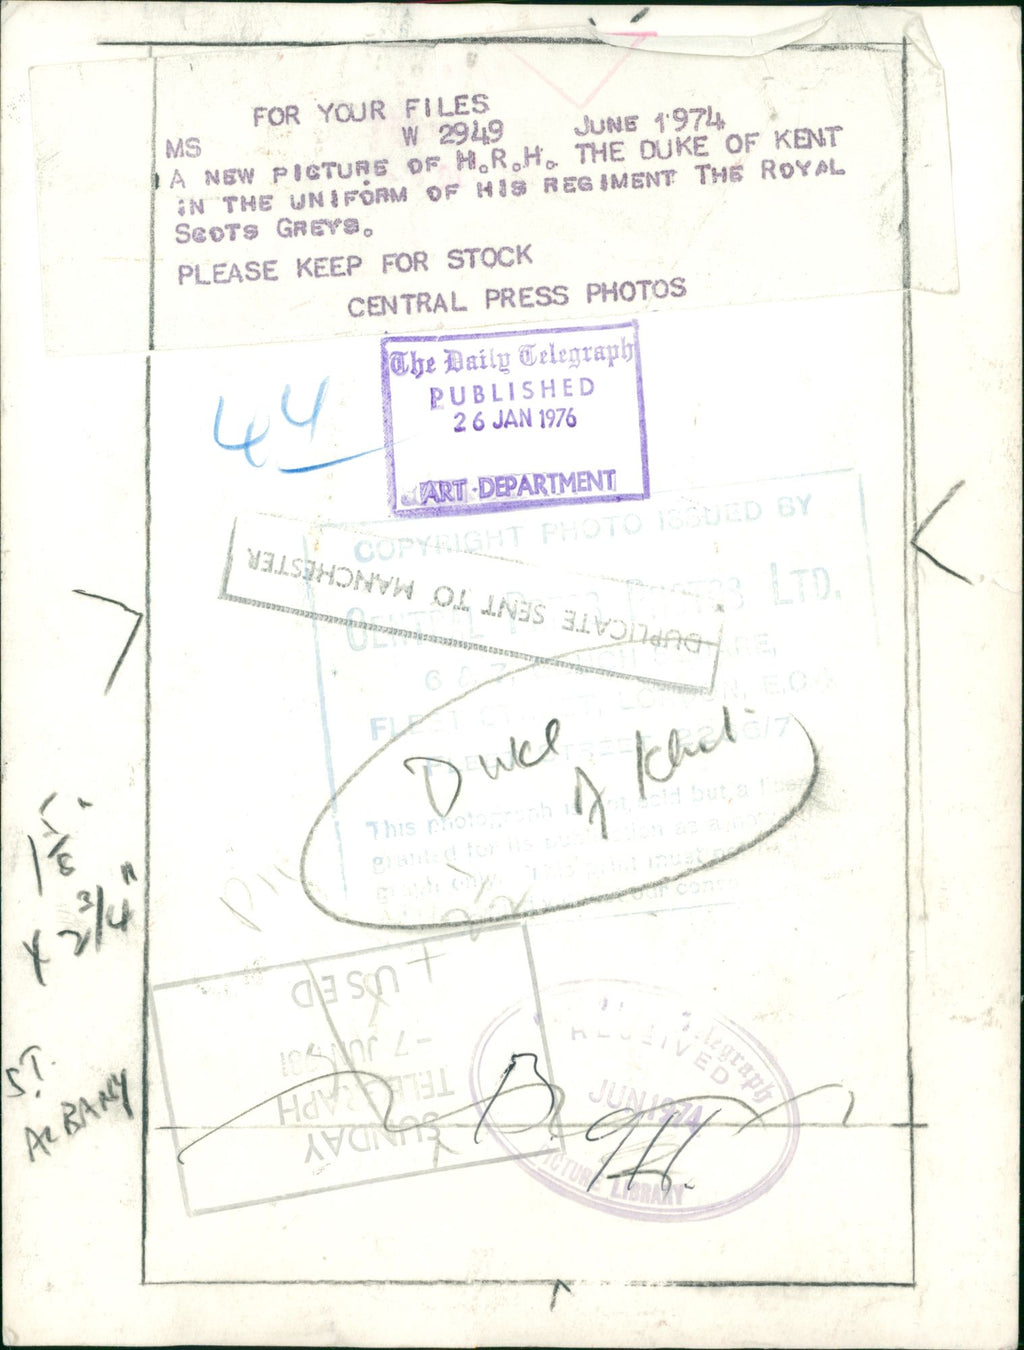 FOR YOUR FILES
MS W 2949 JUNE 1974
A NEW PICTURE OF H.R.H. THE DUKE OF KENT
IN THE UNIFORM OF HIS REGIMENT THE ROYAL
SCOTS GREYS.
PLEASE KEEP FOR STOCK
CENTRAL PRESS PHOTOS
The Daily Telegraph
PUBLISHED
26 JAN 1976
ART DEPARTMENT
44
COPYRIGHT PHOTO ISSUED BY
CENTRAL PRESS PHOTOS LTD.
DUPLICATE SENT TO MANCHESTER
6 & 7
FLEET LONDON, E.C.
FLEET STREET 6/7
Duke of Kent
This photograph is not sold but a
granted for its publication as a
graph only. This print must
our
1 5/8"
x 2 3/4"
ST.
ALBANY
USED
-7 JUN 1981
SUNDAY
TELEGRAPH
RECEIVED
JUN 1974
PICTURE LIBRARY